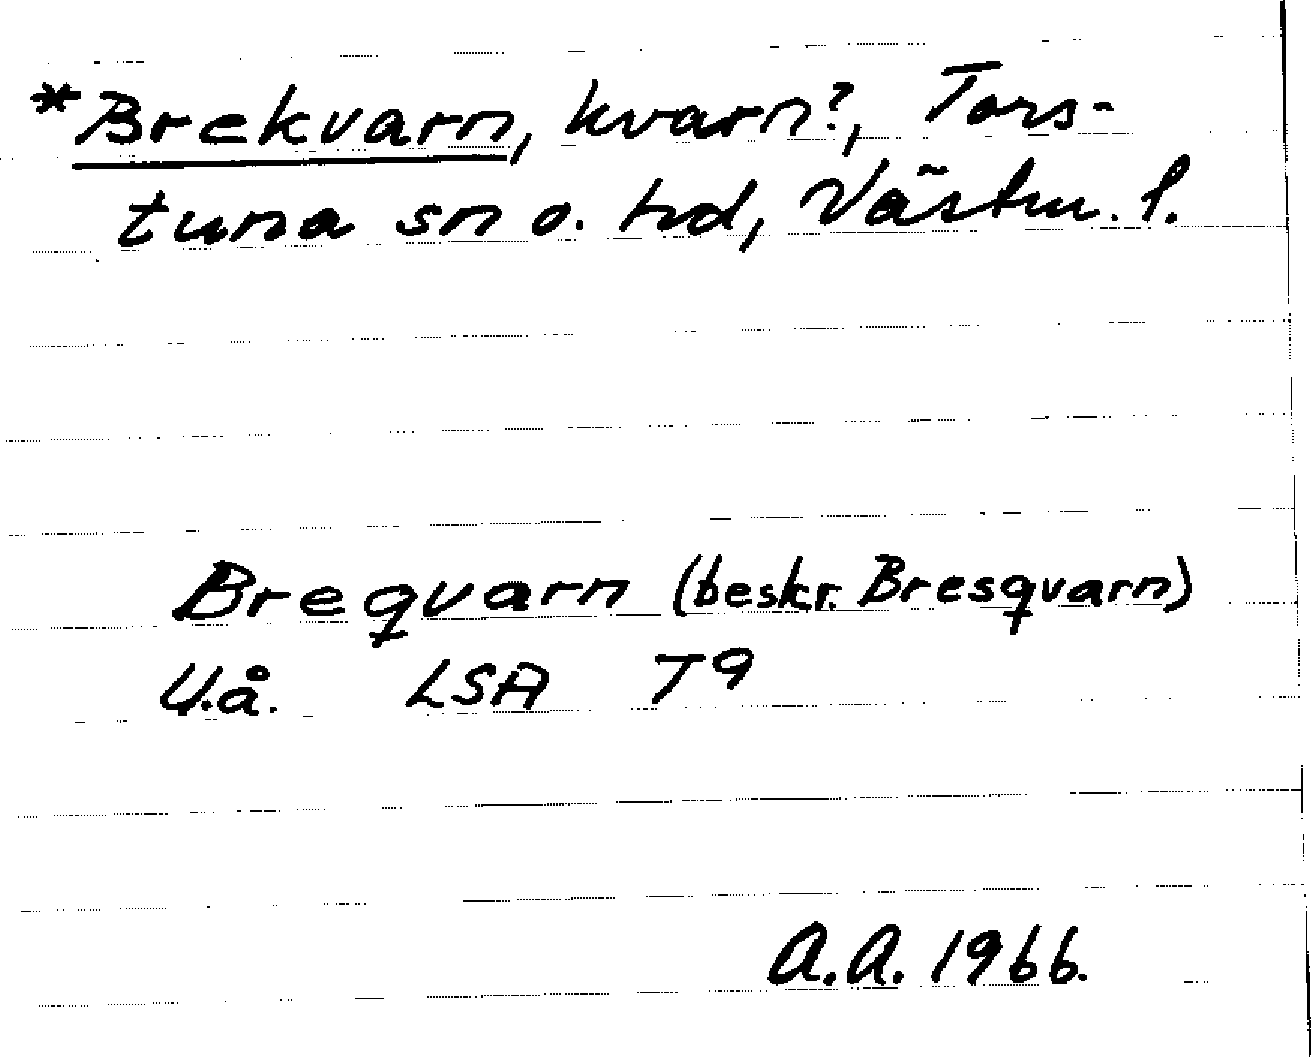 *Brekvarn, kvarn?, Tors-
tuna sn o. hd, Västm. l.
Breqvarn (beskr. Bresqvarn)
U.å. LSA T9
A.A. 1966.